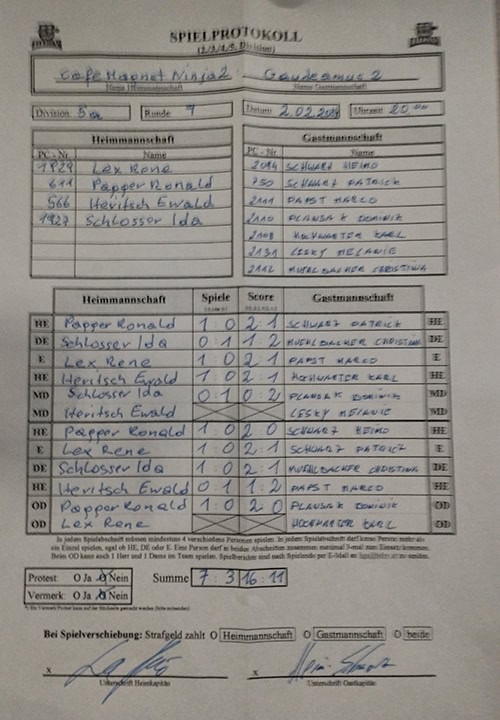 SPIELPROTOKOLL
Cafe Magnet Ninja 2 Gaudeamus 2
Name Heimmannschaft Name Gastmannschaft
Division Runde Datum 2.02. Uhrzeit 20.00
Heimmannschaft Gastmannschaft
PC - Nr. Name PC - Nr. Name
1929 Lex Rene 2094 SCHWARZ HEIMO
611 Papper Ronald 750 SCHWARZ PATRICK
566 Heritsch Ewald 2111 PAPST MARCO
1927 Schlosser Ida 2110 DOMINIK
2108 HOCHWARTER KARL
2131 LESKY MELANIE
2112 MUEHLBACHER CHRISTINA
Heimmannschaft Spiele Score Gastmannschaft
HE Papper Ronald 1 : 0 2 : 1 SCHWARZ PATRICK HE
DE Schlosser Ida 0 : 1 1 : 2 MUEHLBACHER CHRISTINA DE
E Lex Rene 1 : 0 2 : 1 PAPST MARCO E
HE Heritsch Ewald 1 : 0 2 : 1 HOCHWARTER KARL HE
MD Schlosser Ida 0 : 1 0 : 2 DOMINIK MD
MD Heritsch Ewald LESKY MELANIE MD
HE Papper Ronald 1 : 0 2 : 0 SCHWARZ HEIMO HE
E Lex Rene 1 : 0 2 : 1 SCHWARZ PATRICK E
DE Schlosser Ida 1 : 0 2 : 1 MUEHLBACHER CHRISTINA DE
HE Heritsch Ewald 0 : 1 1 : 2 PAPST MARCO HE
OD Papper Ronald 1 : 0 2 : 0 DOMINIK OD
OD Lex Rene HOCHWARTER KARL OD
In jedem Spielabschnitt müssen mindestens 4 verschiedene Personen spielen. In jedem Spielabschnitt darf keine Person mehr als
ein Einzel spielen, egal ob HE, DE oder E. Eine Person darf in beiden Abschnitten zusammen maximal 3-mal zum Einsatz kommen.
Beim OD kann auch 1 Herr und 1 Dame im Team spielen. Spielberichte sind nach Spielende per E-Mail an
Protest: O Ja O Nein Summe 7 : 3 16 : 11
Vermerk: O Ja O Nein
Bei Spielverschiebung: Strafgeld zahlt O Heimmannschaft O Gastmannschaft O beide
x x
Unterschrift Heimkapitän Unterschrift Gastkapitän